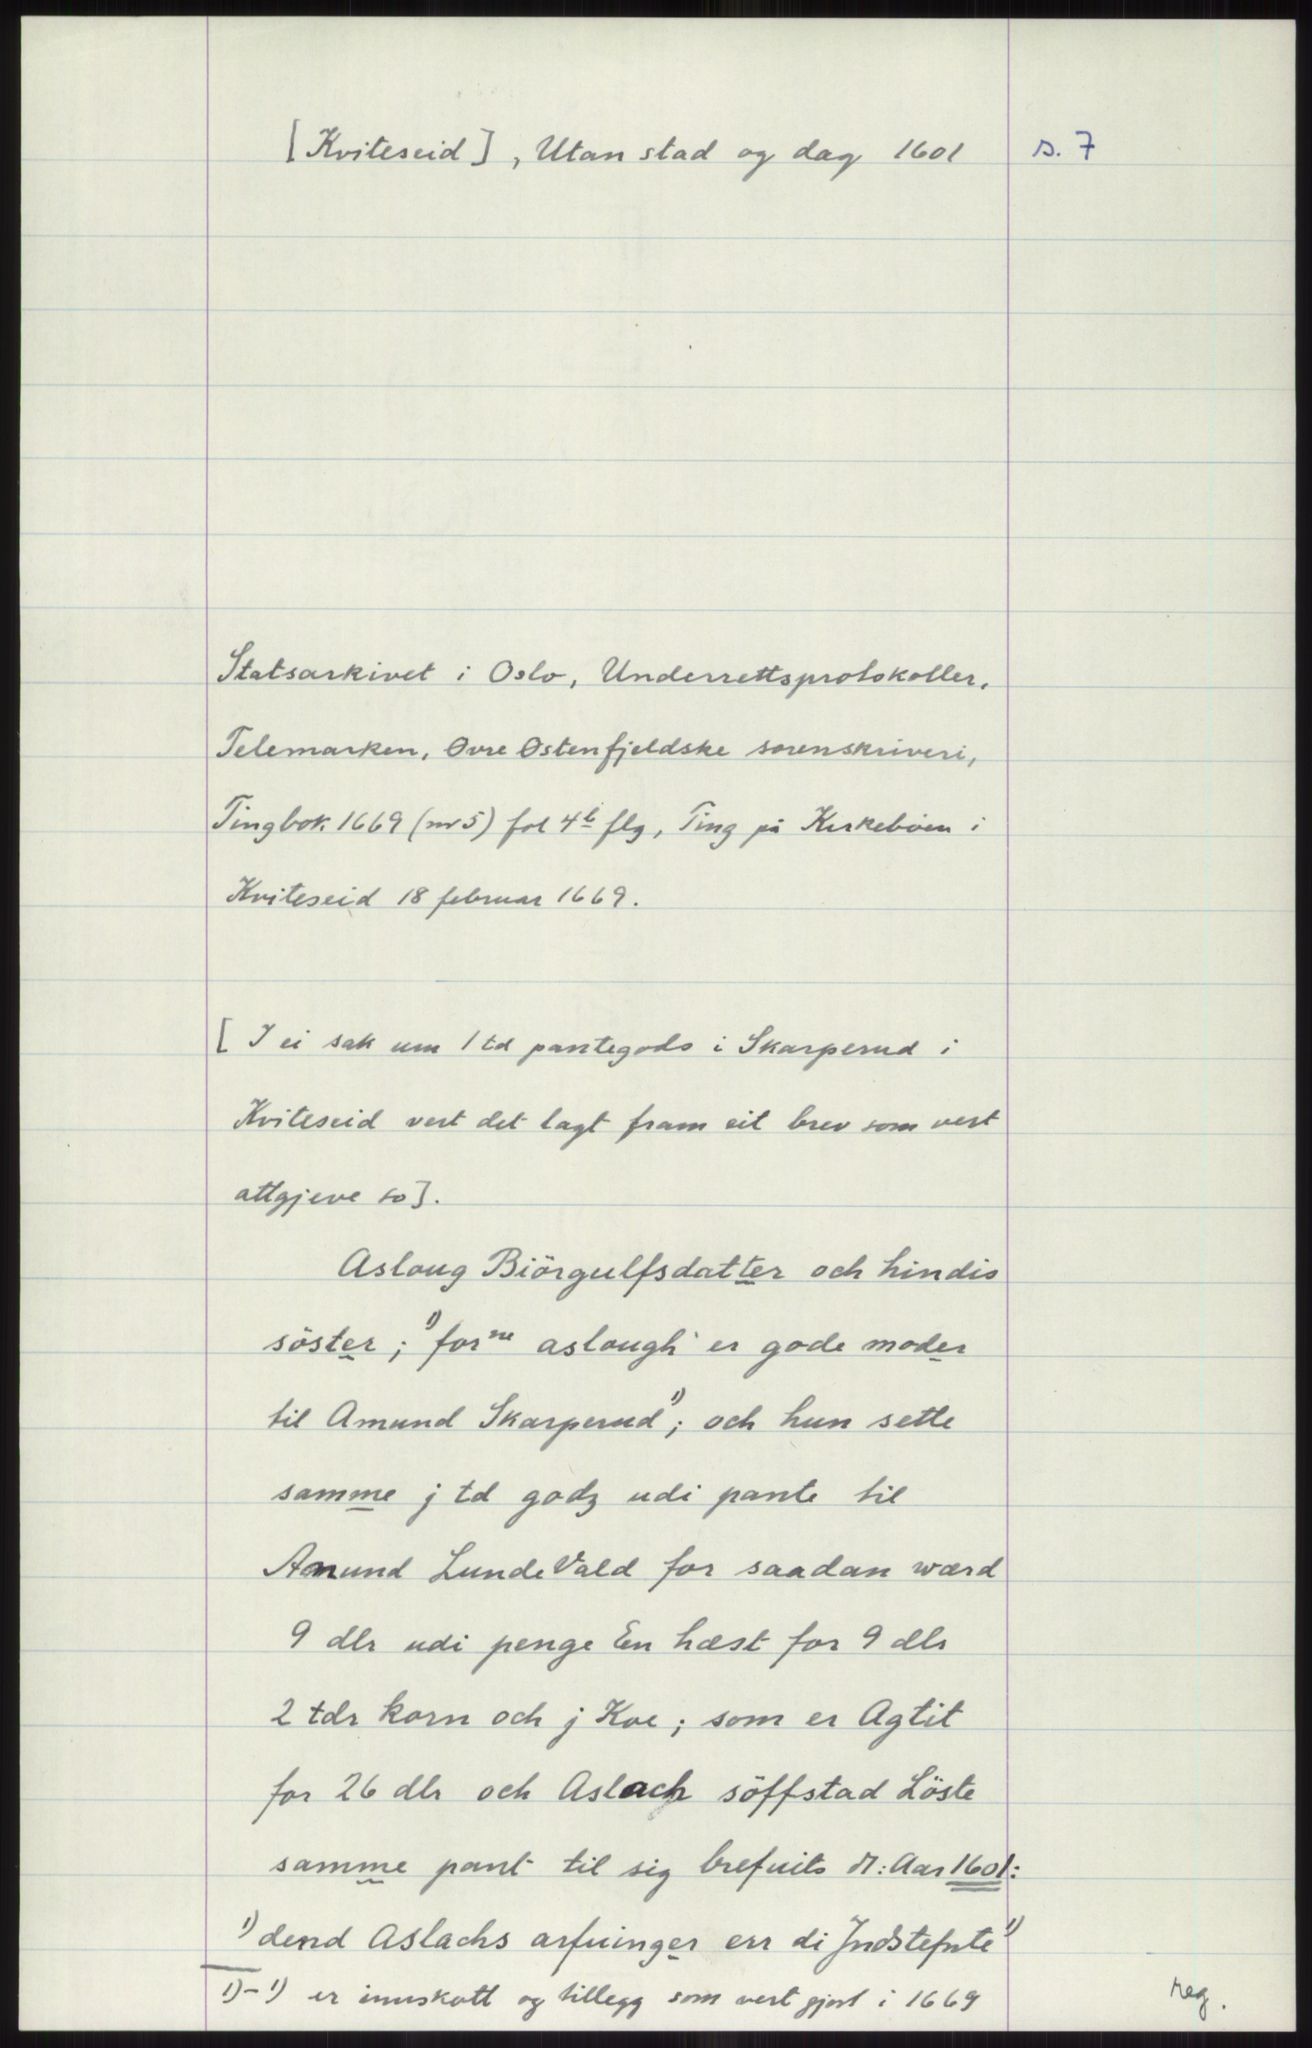 [Kviteseid], Utan stad og dag 1601 s. 7
Statsarkivet i Oslo, Underrettsprotokoller,
Telemarken, Øvre Østenfjeldske sorenskriveri,
Tingbok 1669 (nr 5) fol 4b flg, Ting på Kirkebøen i
Kviteseid 18 februar 1669.
[I ei sak um 1 td pantegods i Skarperud i
Kviteseid vert det lagt fram eit brev som vert
attgjeve so].
Asloug Biörgulfsdatter och hindis
söster; 1) forne aslough er gode moder
til Amund Skarperud 1); och hun sette
samme j td godz udi pante til
Amund LundeVald for saadan wærd
9 dlr udi penge En hæst for 9 dlr
2 tdr korn och j Koe; som er Agtit
for 26 dlr och Aslach söffstad Löste
samme pant til sig brefuits d: Aar 1601:
1) dend Aslachs arfuinger err di Indstefnte 1)
1)-1) er innskott og tillegg som vert gjort i 1669
reg.